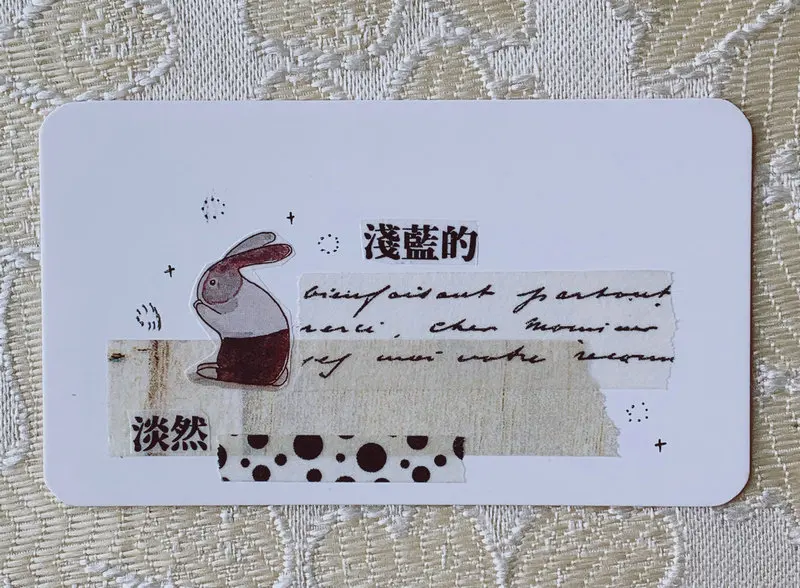 淺藍的
bienfaisant partout
merci, cher Monsieur
votre
淡然